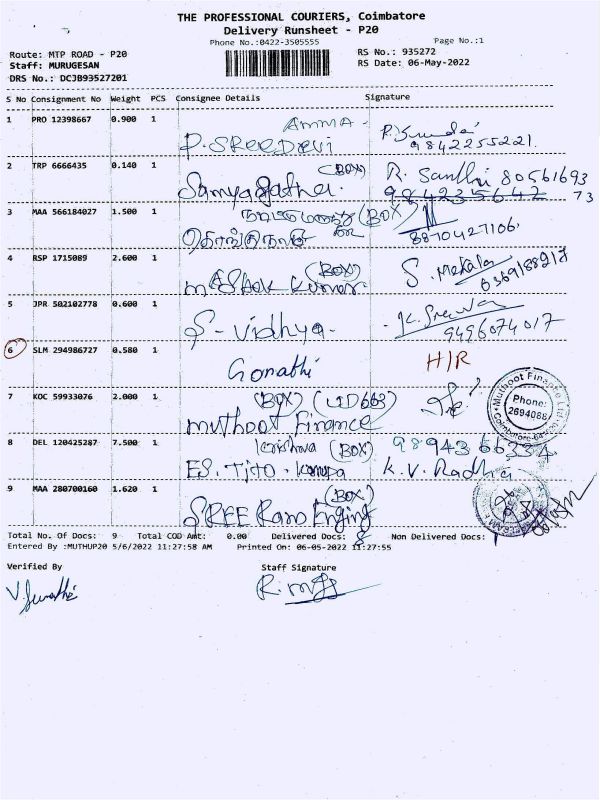 THE PROFESSIONAL COURIERS, Coimbatore
Delivery Runsheet - P20
Phone No.:0422-3505555
Page No.:1
Route: MTP ROAD - P20
RS No.: 935272
Staff: MURUGESAN
RS Date: 06-May-2022
DRS No.: DCJB93527201
S No Consignment No Weight PCS Consignee Details Signature
AMMA -
1 PRO 12398667 0.900 1
P. SREEDEVI
9842255221.
(BOX)
2 TRP 6666435 0.140 1
R. Santhi 80561693
73
9842235642
(BOX)
3 MAA 566184027 1.500 1
8870427106.
(BOX)
4 RSP 1715089 2.600 1
Kumar
S. Mekala
5 JPR 502102778 0.600 1
S- Vidhya -
9496074017
6 SLM 294986727 0.580 1
Gomathi
H/R
7 KOC 59933076 2.000 1
(BOX) (UD663)
Muthoot Finance
Muthoot Finance Ltd
Phone:
2694088
8 DEL 120425287 7.500 1
Krishna (BOX)
ES. Tito.
9894366334
K.V. Radha
(BOX)
9 MAA 280700160 1.620 1
SREE Ram
Total No. Of Docs: 9 Total COD Amt: 0.00 Delivered Docs: 8 Non Delivered Docs: 1
Entered By :MUTHUP20 5/6/2022 11:27:58 AM Printed On: 06-05-2022 11:27:55
Verified By
Staff Signature